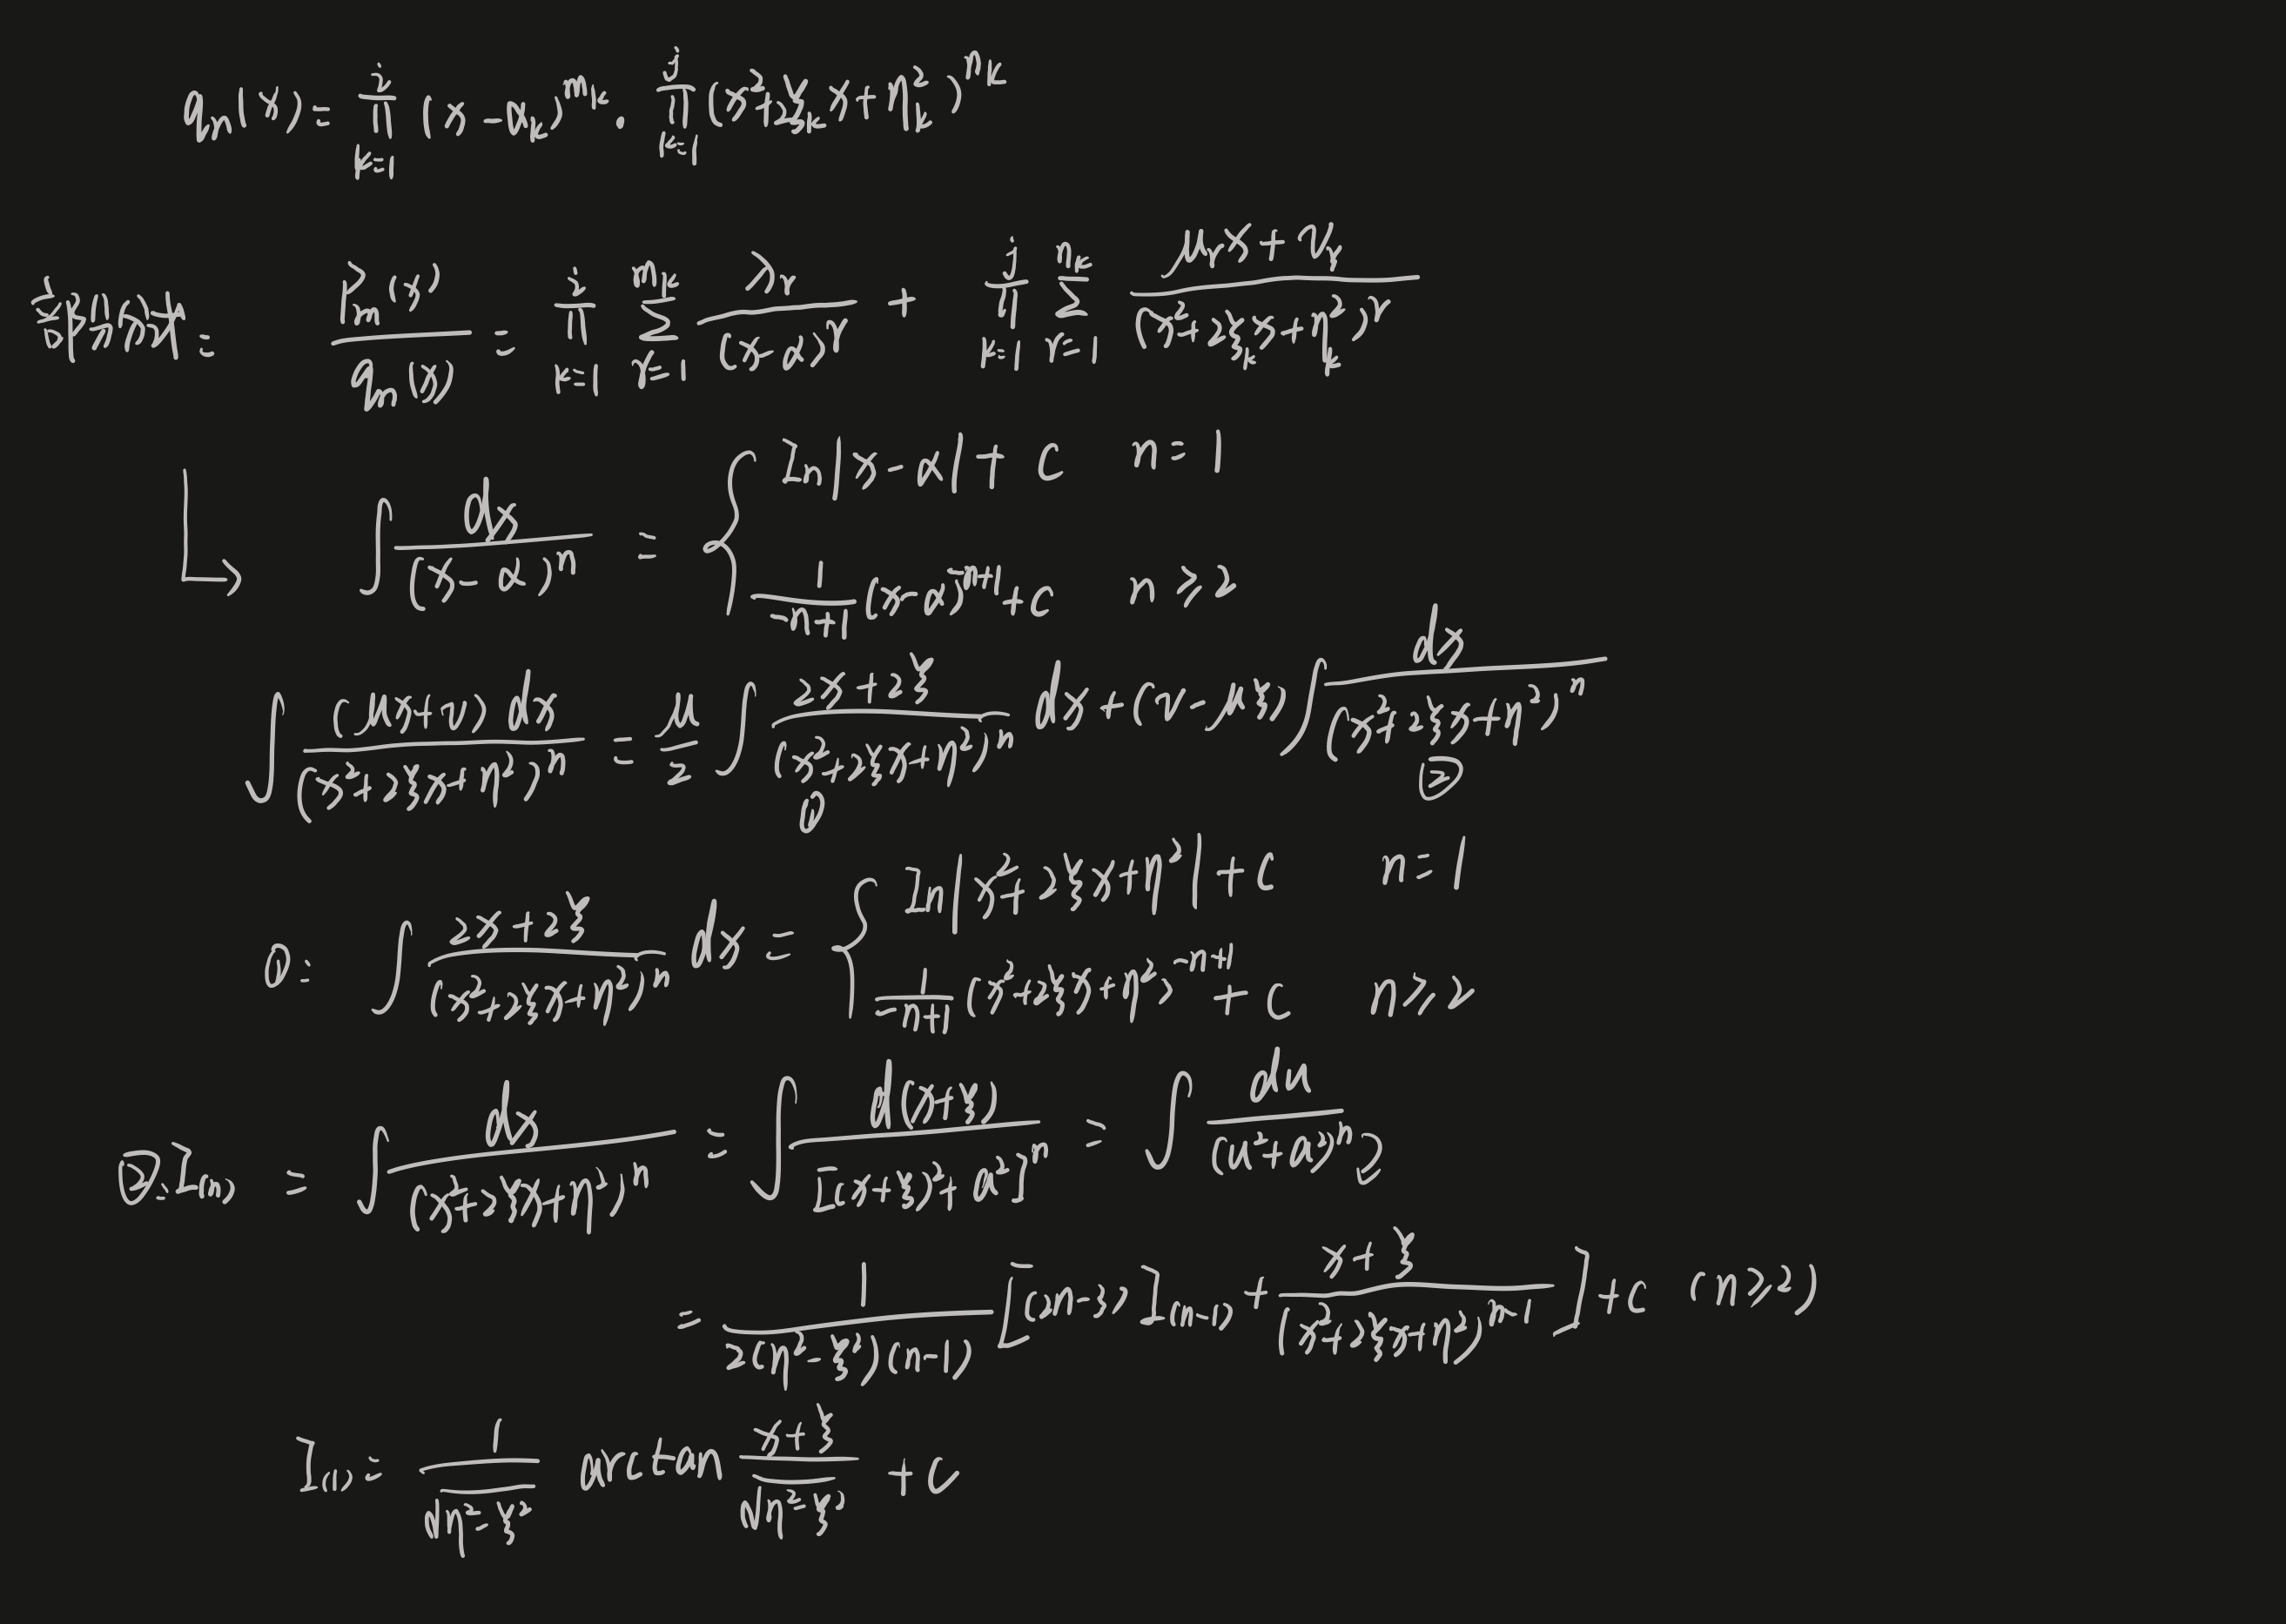 qₙ(x) = ∏_{k=1}^{i} (x-α_k)^{m_k} · ∏_{k=1}^{j} (x²+2ξ_k x+η_k²)^{n_k}
部分分式: p_m(x)/qₙ(x) = ∏_{k=1}^{i} ∑_{r=1}^{m_k} λ_r/(x-α)^r + ∏_{k=1}^{j} ∑_{r=1}^{n_k} (μ_r x+ν_r)/(x²+2ξ_k x+η_k²)^r
↳ ∫ dx/(x-α)^n = { ln|x-α|+c n=1
1/(-n+1) (x-α)^{-n+1}+c n≥2
∫ (μx+ν)dx/(x²+2ξx+η²)^n = μ/2 ∫ (2x+2ξ)/(x²+2ξx+η²)^n dx + (ν-μξ) ∫ dx/(x²+2ξx+η²)^n
① ②
①: ∫ (2x+2ξ)/(x²+2ξx+η²)^n dx = { ln|x²+2ξx+η²|+c n=1
1/(-n+1) (x²+2ξx+η²)^{-n+1}+c n≥2
②: I_(n) = ∫ dx/(x²+2ξx+η²)^n = ∫ d(x+ξ)/[(x+ξ)²+a²]^n = ∫ du/(u²+a²)^n
= 1/(2(η²-ξ²)(n-1)) [(2n-3)I_(n-1) + (x+ξ)/(x²+2ξx+η²)^{n-1}]+c (n≥2)
I_(1) = 1/√(η²-ξ²) arctan (x+ξ)/√(η²-ξ²) +c